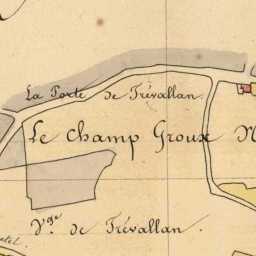 La Porte de Trévallan.
Le Champ Groux
Vge de Trévallan.